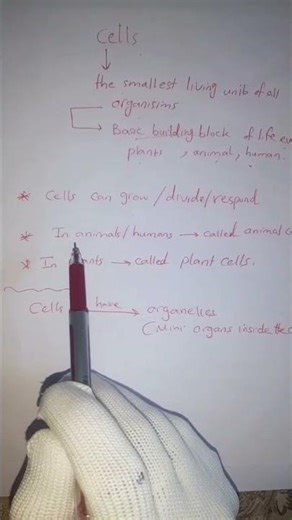 Cells
the smallest living unit of all
organisims
Basic building block of life
plants , animal, human
* Cells can grow/divide/respond
* In animals/humans → called animal
* In → called plant cells.
Cells have → organelles
(Mini organs inside the